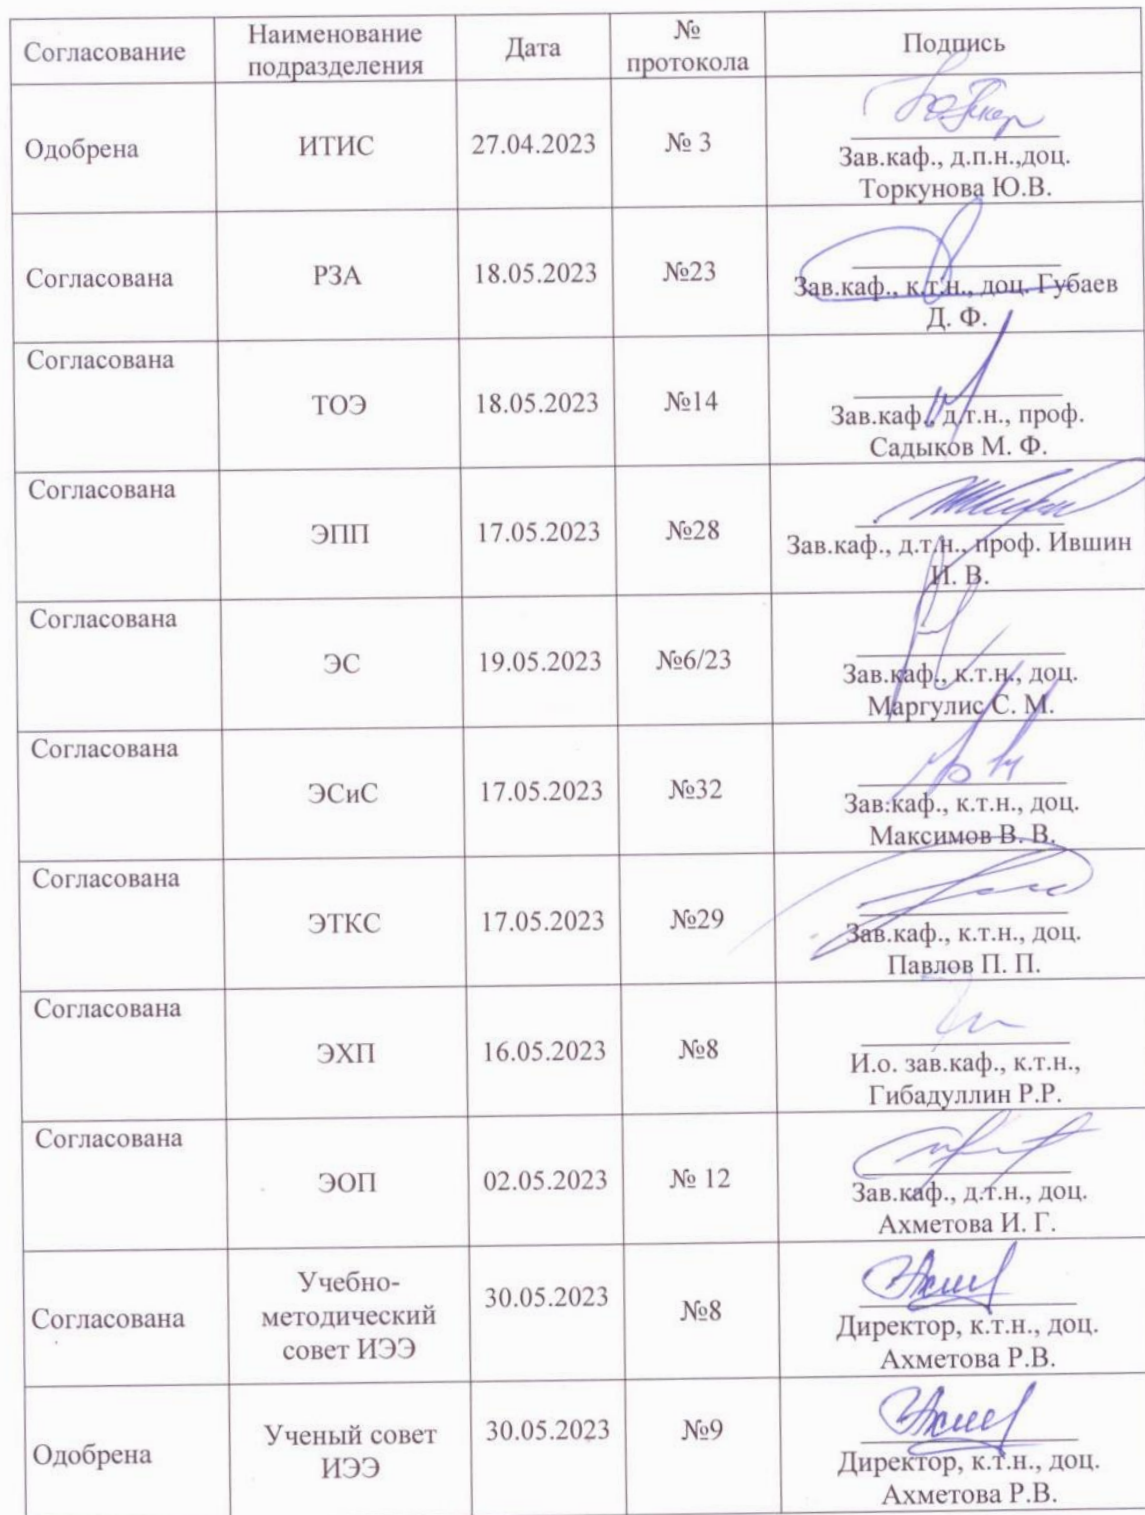 Согласование
Наименование
подразделения
Дата
№
протокола
Подпись
Одобрена
ИТИС
27.04.2023
№ 3
Зав.каф., д.п.н.,доц.
Торкунова Ю.В.
Согласована
РЗА
18.05.2023
№23
Зав.каф., к.т.н., доц. Губаев
Д. Ф.
Согласована
ТОЭ
18.05.2023
№14
Зав.каф., д.т.н., проф.
Садыков М. Ф.
Согласована
ЭПП
17.05.2023
№28
Зав.каф., д.т.н., проф. Ившин
И. В.
Согласована
ЭС
19.05.2023
№6/23
Зав.каф., к.т.н., доц.
Маргулис С. М.
Согласована
ЭСиС
17.05.2023
№32
Зав.каф., к.т.н., доц.
Максимов В. В.
Согласована
ЭТКС
17.05.2023
№29
Зав.каф., к.т.н., доц.
Павлов П. П.
Согласована
ЭХП
16.05.2023
№8
И.о. зав.каф., к.т.н.,
Гибадуллин Р.Р.
Согласована
ЭОП
02.05.2023
№ 12
Зав.каф., д.т.н., доц.
Ахметова И. Г.
Согласована
Учебно-
методический
совет ИЭЭ
30.05.2023
№8
Директор, к.т.н., доц.
Ахметова Р.В.
Одобрена
Ученый совет
ИЭЭ
30.05.2023
№9
Директор, к.т.н., доц.
Ахметова Р.В.